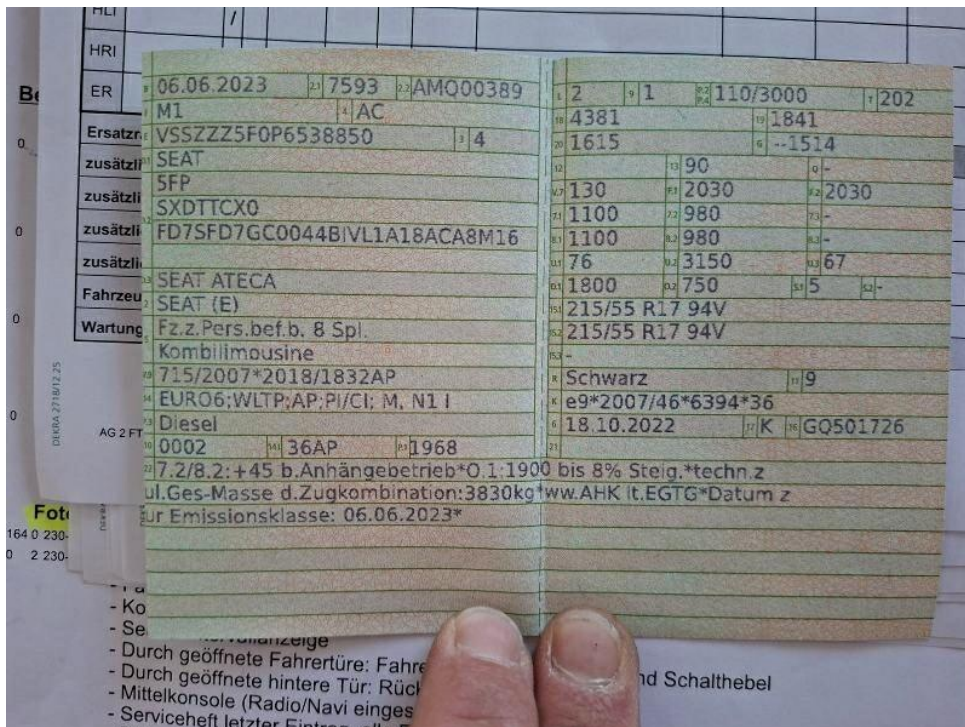 HLI
/
HRI
ER
Ersatzr
zusätzli
zusätzli
zusätzli
zusätzli
Fahrzeu
Wartung
DEKRA 2718/12.25
AG 2 FT
06.06.2023 2.1 7593 2.2 AMQ00389
M1 4 AC
E VSSZZZ5F0P6538850 3 4
SEAT
5FP
SXDTTCX0
FD7SFD7GC0044BIVL1A18ACA8M16
SEAT ATECA
2 SEAT (E)
5 Fz.z.Pers.bef.b. 8 Spl.
Kombilimousine
715/2007*2018/1832AP
14 EURO6;WLTP;AP;PI/CI; M, N1 I
Diesel
10 0002 14.1 36AP P.1 1968
L 2 9 1 P.2 P.4 110/3000 T 202
18 4381 19 1841
20 1615 G --1514
12 13 90 Q -
V.7 130 F.1 2030 F.2 2030
7.1 1100 7.2 980 7.3 -
8.1 1100 8.2 980 8.3 -
U.1 76 U.2 3150 U.3 67
O.1 1800 O.2 750 S.1 5 S.2 -
15.1 215/55 R17 94V
15.2 215/55 R17 94V
15.3 -
R Schwarz 11 9
K e9*2007/46*6394*36
6 18.10.2022 17 K 16 GQ501726
21
22 7.2/8.2:+45 b.Anhängebetrieb*O.1:1900 bis 8% Steig.*techn.z
ul.Ges-Masse d.Zugkombination:3830kg*ww.AHK lt.EGTG*Datum z
ur Emissionsklasse: 06.06.2023*
Foto
164 0 230-
0 2 230-
- Ko
- Se
- Durch geöffnete Fahrertüre: Fahre
- Durch geöffnete hintere Tür: Rück nd Schalthebel
- Mittelkonsole (Radio/Navi einges
- Serviceheft letzter Eintrag